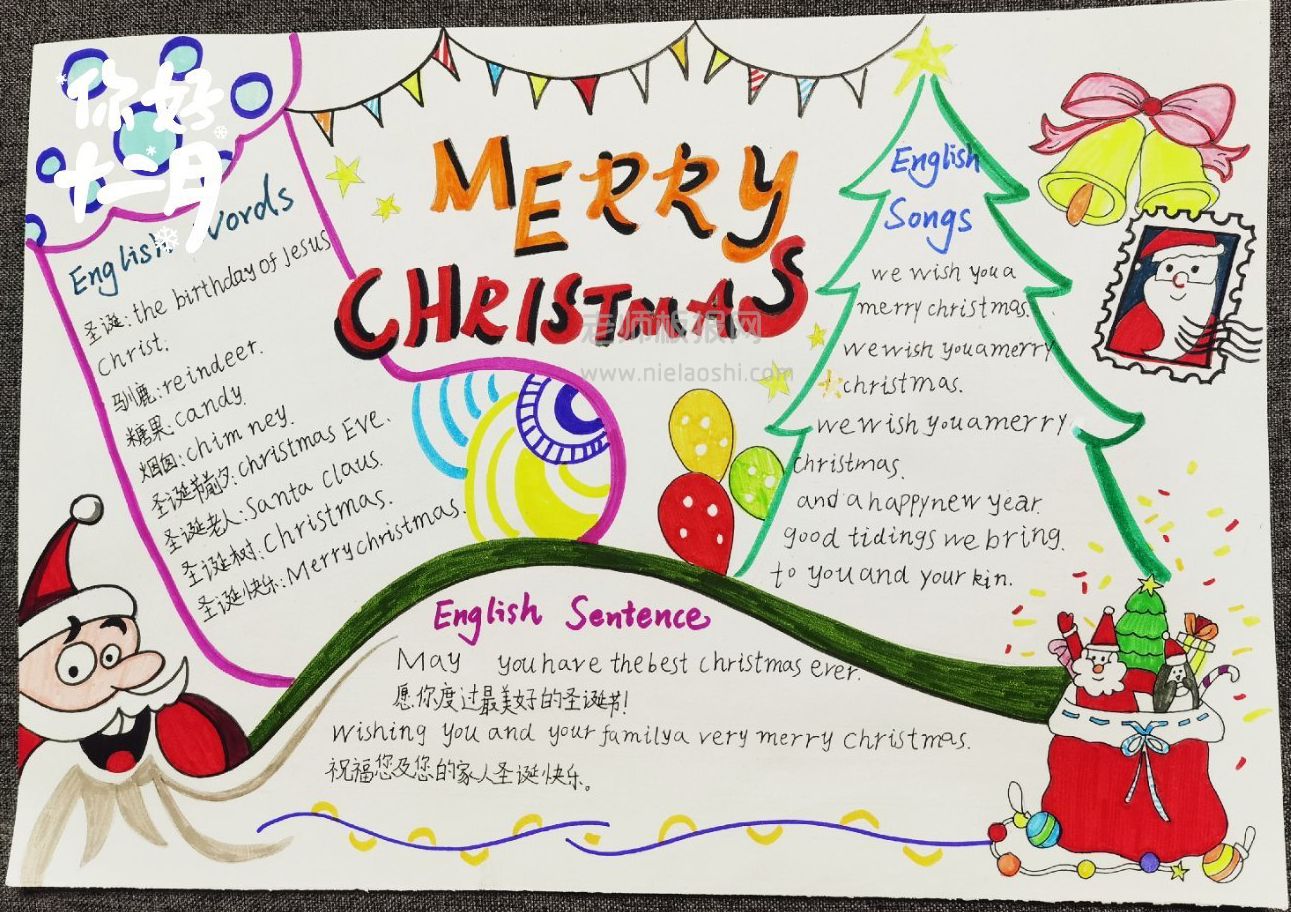 你好
十二月
English Words
圣诞:the birthday of Jesus
Christ.
驯鹿:reindeer.
糖果:candy.
烟囱:chimney.
圣诞节前夕:christmas Eve.
圣诞老人:Santa claus.
圣诞树:christmas.
圣诞快乐:Merry christmas.
MERRY
CHRISTMAS
老师板报网
www.nielaoshi.com
English
Songs
we wish you a
merry christmas.
we wish you a merry
christmas.
we wish you a merry
christmas.
and a happy new year.
good tidings we bring.
to you and your kin.
English Sentence
May you have the best christmas ever.
愿你度过最美好的圣诞节!
wishing you and your family a very merry christmas.
祝福您及您的家人圣诞快乐。